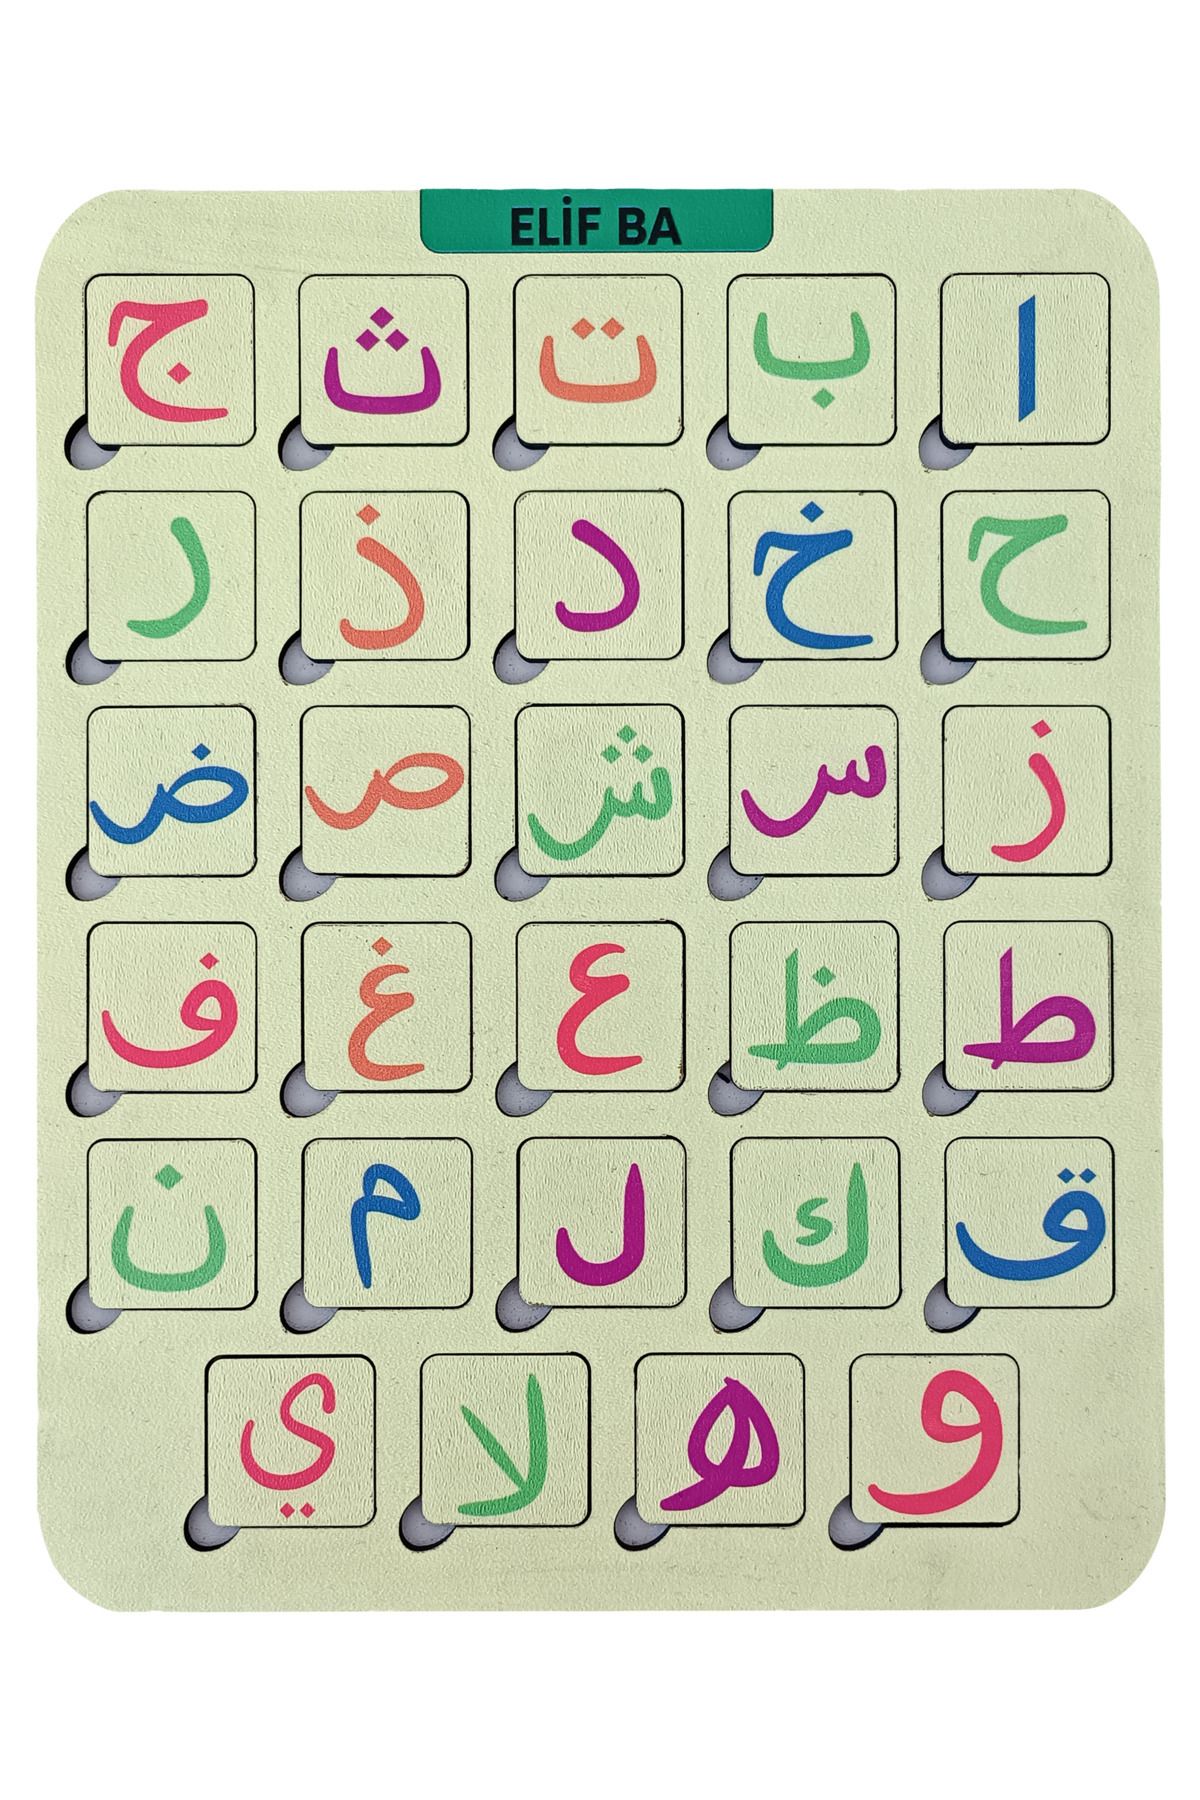 ELİF BA
ا ب ت ث ج
ح خ د ذ ر
ز س ش ص ض
ط ظ ع غ ف
ق ك ل م ن
و ه لا ي